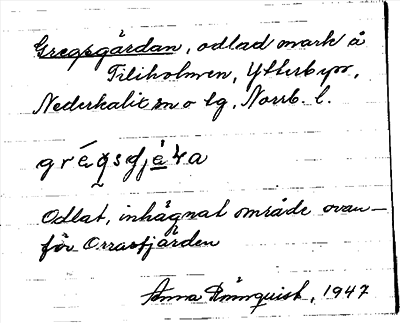 Gregsgärdan, odlad mark å
Filiholmen, Ytterbyn,
Nederkalix sn o tg, Norrb. l.
gregsdjä̀ra
Odlat, inhägnat område ovan-
för Orrasfjärden
Anna Rönnquist, 1947